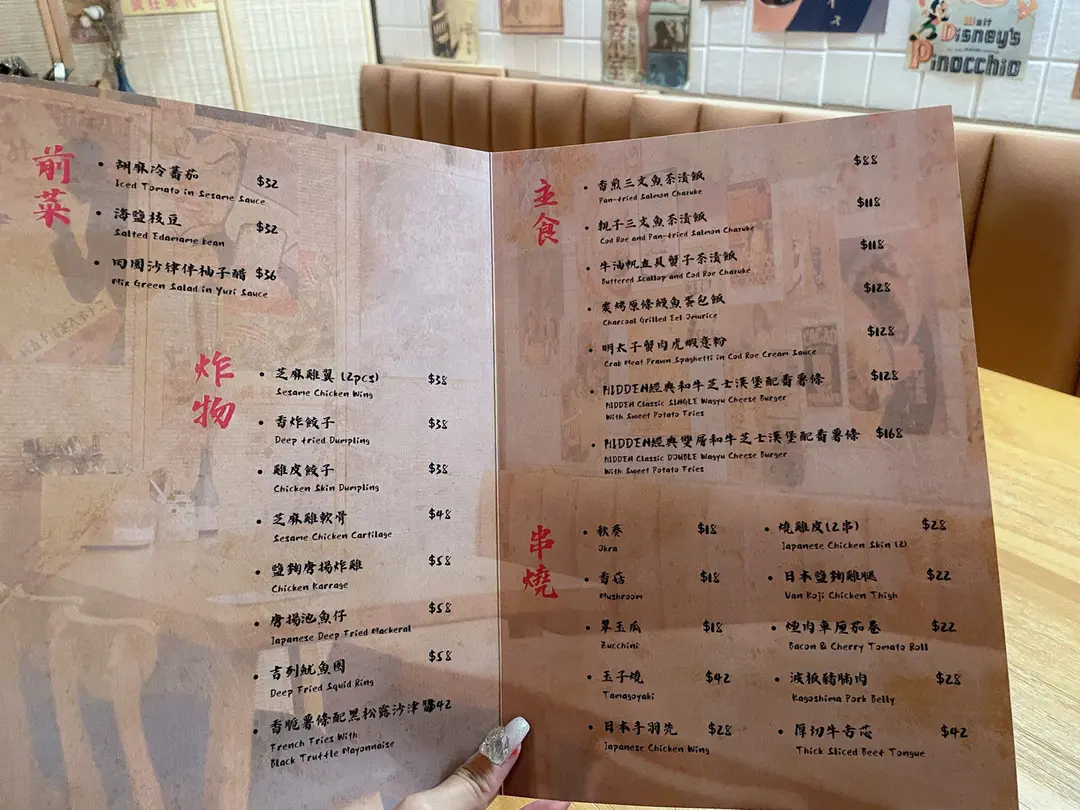 Walt
Disney's
Pinocchio
前菜
胡麻冷蕃茄 $32
Iced Tomato in Sesame Sauce
海鹽枝豆 $32
Salted Edamame bean
田園沙律伴柚子醋 $36
Mix Green Salad in Yuzi Sauce
炸物
芝麻雞翼 (2pcs) $38
Sesame Chicken Wing
香炸餃子 $38
Deep fried Dumpling
雞皮餃子 $38
Chicken Skin Dumpling
芝麻雞軟骨 $48
Sesame Chicken Cartilage
鹽麴唐揚炸雞 $58
Chicken Karrage
唐揚池魚仔 $58
Japanese Deep Fried Mackeral
吉列魷魚圈 $58
Deep Fried Squid Ring
香脆薯條配黑松露沙津醬 $42
French Fries With
Black Truffle Mayonnaise
主食
香煎三文魚茶漬飯 $88
Pan-fried Salmon Chazuke
親子三文魚茶漬飯 $118
Cod Roe and Pan-fried Salmon Chazuke
牛油帆立貝蟹子茶漬飯 $118
Buttered Scallop and Cod Roe Chazuke
炭烤原條鰻魚蛋包飯 $128
Charcoal Grilled Eel Omurice
明太子蟹肉虎蝦意粉 $128
Crab Meat Prawn Spaghetti in Cod Roe Cream Sauce
HIDDEN經典和牛芝士漢堡配蕃薯條 $128
HIDDEN Classic SINGLE Wagyu Cheese Burger
With Sweet Potato Fries
HIDDEN經典雙層和牛芝士漢堡配蕃薯條 $168
HIDDEN Classic DOUBLE Wagyu Cheese Burger
With Sweet Potato Fries
串燒
秋葵 $18
Okra
香菇 $18
Mushroom
翠玉瓜 $18
Zucchini
玉子燒 $42
Tamagoyaki
日本手羽先 $28
Japanese Chicken Wing
燒雞皮(2串) $28
Japanese Chicken Skin (2)
日本鹽麴雞腿 $22
Van Koji Chicken Thigh
煙肉車厘茄卷 $22
Bacon & Cherry Tomato Roll
波板豬腩肉 $28
Kagoshima Pork Belly
厚切牛舌芯 $42
Thick Sliced Beef Tongue